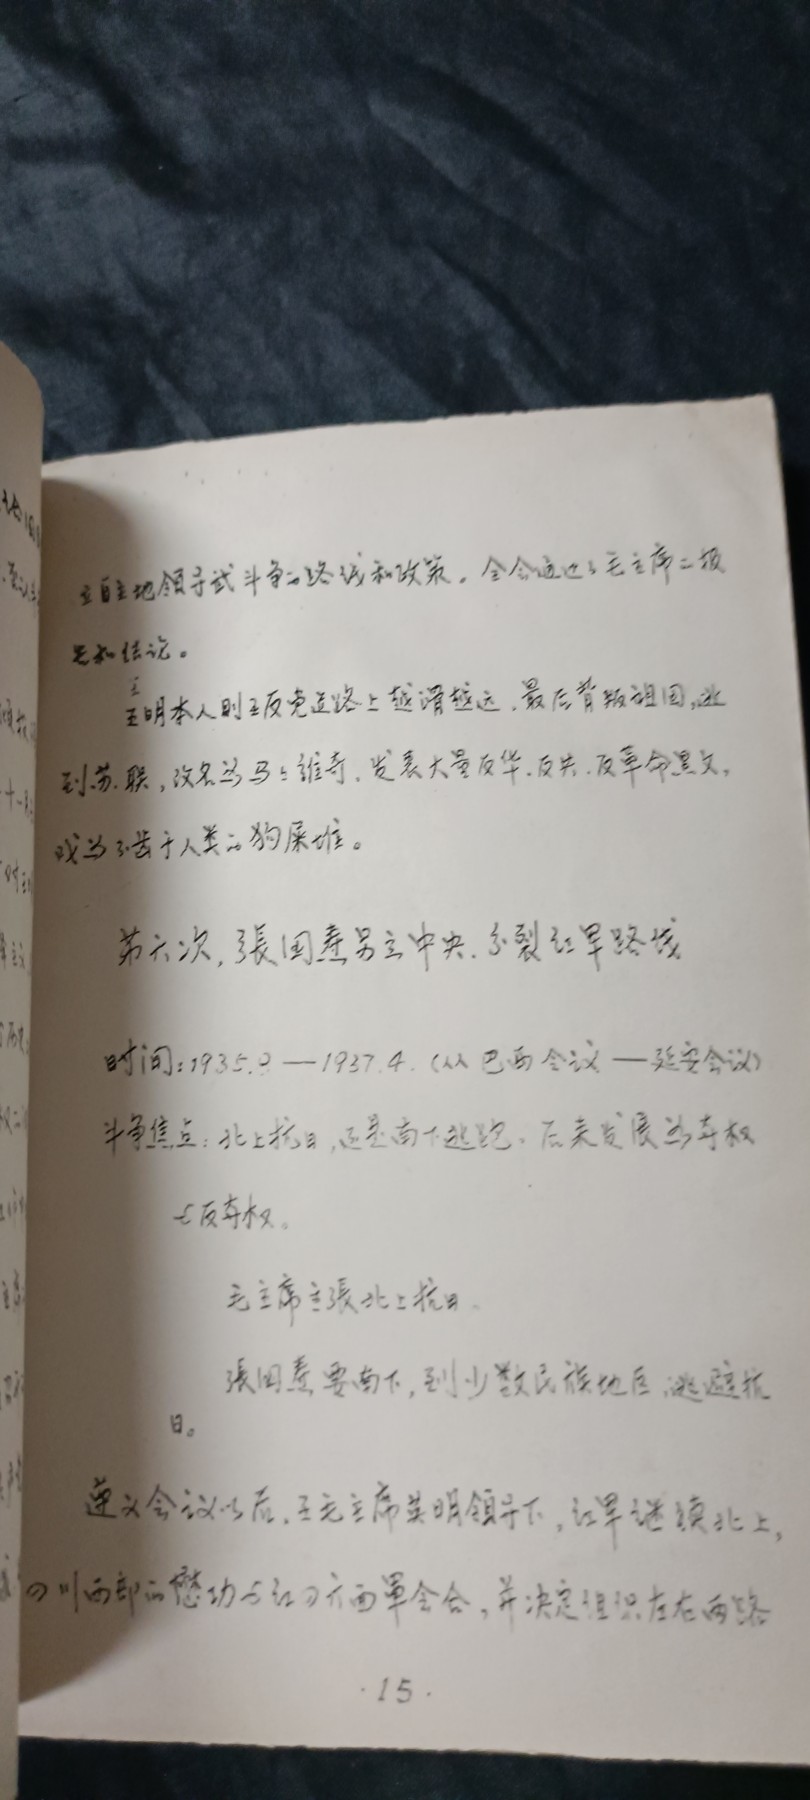 立自主地领导武斗争的路线和政策。全会通过了毛主席的报
告和结论。
王明本人则在反党道路上越滑越远，最后背叛祖国，逃
到苏联，改名为马马维奇，发表大量反华、反共、反革命黑文，
成为不齿于人类的狗屎堆。
第六次，張国燾另立中央、分裂红軍路线
时间：1935.9—1937.4.（从巴西会议—延安会议）
斗争焦点：北上抗日，还是南下逃跑。后来发展为夺权
与反夺权。
毛主席主張北上抗日。
張国燾要南下，到少数民族地区，逃避抗
日。
遵义会议以后，在毛主席英明領导下，红軍继续北上，
四川西部的懋功与红四方面軍会合，并决定组织左右两路
·15·